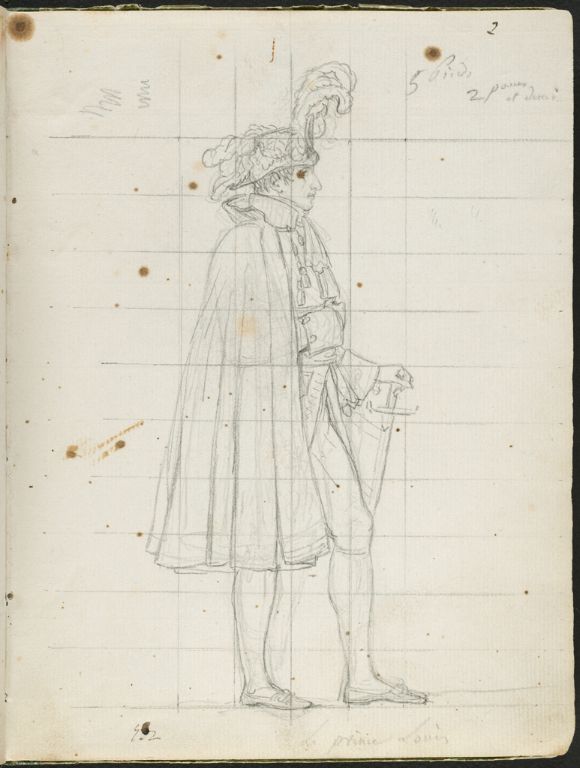 2
5 Pieds
2 pouces
et demi
452
le prince Louis